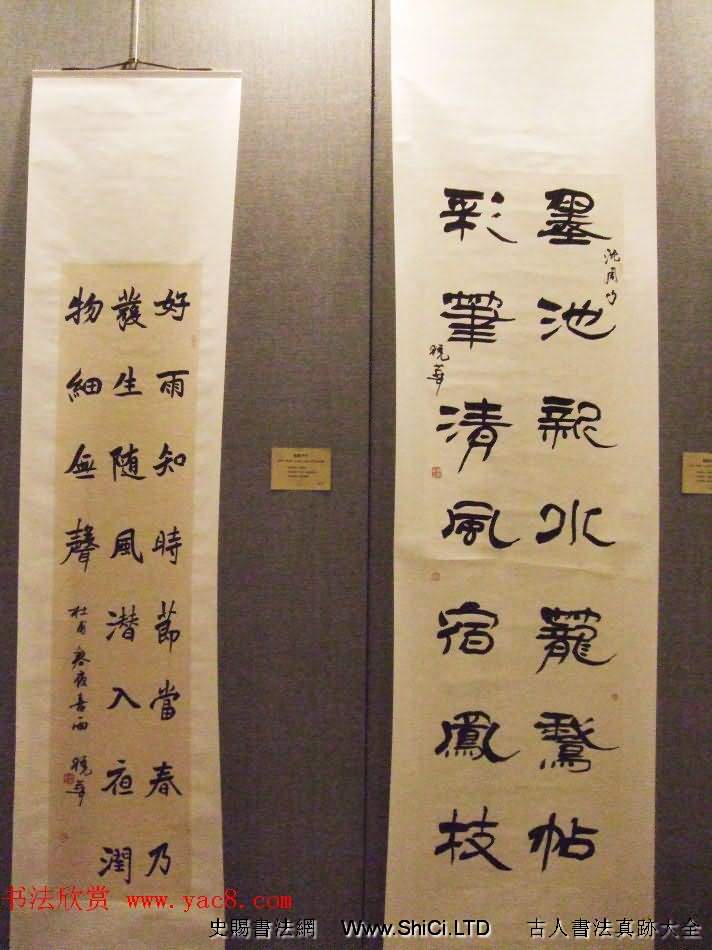 墨池新水籠鵞帖
沈周句
彩筆清風宿鳳枝
曉華
好雨知時節當春乃
發生随風潜入夜潤
物細無聲
杜甫春夜喜雨
曉華
书法欣赏 www.yac8.com
史賜書法網 Www.ShiCi.LTD 古人書法真跡大全